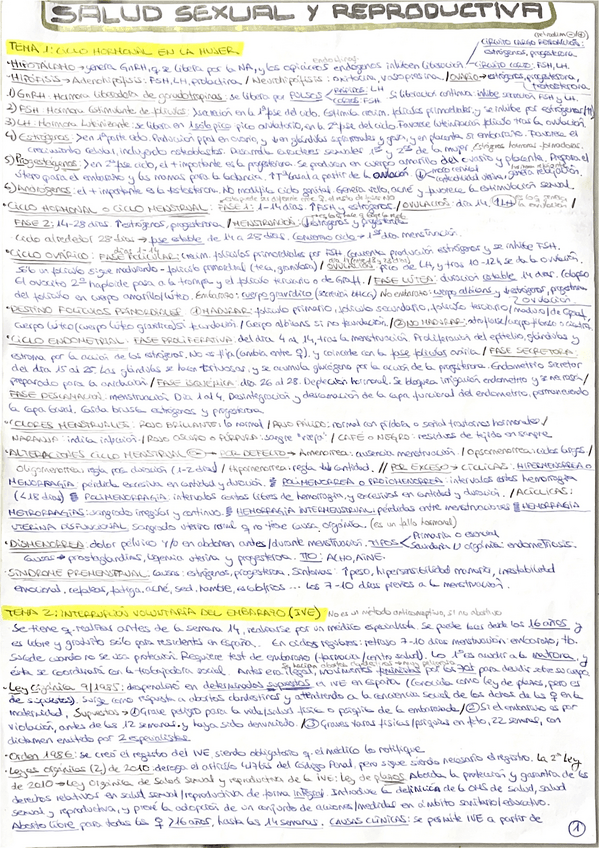 SALUD SEXUAL Y REPRODUCTIVA
TEMA 1: CICLO HORMONAL EN LA MUJER
HIPOTÁLAMO → genera GnRH, q se libera por la NA, y los opiáceos endógenos inhiben liberación
CIRCUITO LARGO
estrógenos, progesterona
CIRCUITO CORTO: FSH, LH.
HIPÓFISIS → Adenohipófisis: FSH, LH, prolactina / Neurohipófisis: oxitocina, vasopresina. / OVARIO → estrógenos, progesterona, testosterona
1) GnRH - Hormona liberadora de gonadotropinas: se libera por PULSOS
LH
FSH
Si liberación continua inhibe FSH y LH.
2) FSH Hormona Estimulante de folículos: secreción en la 1ª fase del ciclo. Estimula crecim. folículos primordiales, y se inhibe por estrógenos
3) LH Hormona Luteinizante: se libera en pico ovulatorio, en la 2ª fase del ciclo. Favorece luteinización folículo tras la ovulación.
4) Estrógenos: > en 1ª parte ciclo. Producción ppal en ovario, y en glándulas suprarrenales y grasa, y en placenta si embarazo. Favorece el
crecimiento celular, incluyendo Desarrolla caracteres sexuales 1º y 2º de la mujer
5) Progestágenos: > en 2ª fase ciclo, el + importante es la progesterona. Se produce en cuerpo amarillo del ovario y placenta. Prepara el
útero para el embarazo y las mamas para la lactancia. ↑ Tª basal a partir de la ovulación
6) Andrógenos: el + importante es la testosterona. No modifica ciclo genital. Genera vello, acné y favorece la estimulación sexual.
CICLO HORMONAL o CICLO MENSTRUAL: FASE 1: 1-14 días. ↑ FSH y estrógenos / OVULACIÓN: día 14, ↑ LH
FASE 2: 14-28 días. Estrógenos, progesterona / MENSTRUACIÓN: ↓ estrógenos y progesterona
Ciclo alrededor 28 días → fase estable de 14 a 28 días. Comienzo ciclo → 1er día menstruación.
CICLO OVÁRICO: FASE FOLICULAR: crecim. folículos primordiales por FSH producción estrógenos y se inhibe FSH.
solo un folículo sigue madurando - folículo primordial (teca, granulosa) / OVULACIÓN: pico de LH, y tras 10-12h se da la ovulación.
El ovocito 2º haploide pasa a la trompa y el folículo terciario o de Graaf. / FASE LÚTEA: duración estable 14 días. Colapso
del folículo en cuerpo amarillo/lúteo. Embarazo: cuerpo gravídico (secreción βHCG) No embarazo: cuerpo albicans y ↓ estrógenos, progesterona
DESTINO FOLÍCULOS PRIMORDIALES: ① MADURAR: folículo primario, folículo secundario, folículo terciario/maduro/de Graaf,
cuerpo lúteo (cuerpo lúteo gravídico si fecundación / cuerpo albicans si no fecundación) / ② NO MADURAR:
CICLO ENDOMETRIAL: FASE PROLIFERATIVA del día 4 al 14, tras la menstruación. Proliferación del epitelio, glándulas y
estroma por la acción de los estrógenos. No es fija (cambia entre ♀), y coincide con la fase folicular ovárica / FASE SECRETORA:
del día 15 al 25. Las glándulas se hacen tortuosas, y se acumula glucógeno por la acción de la progesterona. Endometrio secretor
preparado para la anidación / FASE ISQUÉMICA: día 26 al 28. Depleción hormonal. Se bloquea irrigación endometrio y se necrosa /
FASE DESCAMACIÓN: menstruación. Día 1 al 4. Desintegración y descamación de la capa funcional del endometrio, permaneciendo
la capa basal. Caída brusca estrógenos y progesterona
COLORES MENSTRUALES: ROJO BRILLANTE: lo normal / ROJO PÁLIDO: normal con píldora o señal trastornos hormonales /
NARANJA: indica infección / ROJO OSCURO o PÚRPURA: sangre "vieja" / CAFÉ o NEGRO: residuos de tejido en sangre
ALTERACIONES CICLO MENSTRUAL → POR DEFECTO → Amenorrea: ausencia menstruación. / Opsomenorrea: ciclos largos /
Oligomenorrea: regla poca duración (1-2 días) / Hipomenorrea: regla ↓ cantidad. // POR EXCESO → CÍCLICAS: HIPERMENORREA O
MENORRAGIA: pérdida excesiva en cantidad y duración. POLIMENORREA o PROIOMENORREA: intervalos entre hemorragia
(<18 días) POLIMENORRAGIA: intervalos cortos libres de hemorragia, y excesivos en cantidad y duración. / ACÍCLICAS:
METRORRAGIAS: sangrado irregular y continuo. HEMORRAGIA INTERMENSTRUAL: pérdidas entre menstruaciones HEMORRAGIA
UTERINA DISFUNCIONAL: sangrado uterino anormal q no tiene causa orgánica. (es un fallo hormonal)
DISMENORREA: dolor pélvico y/o en abdomen antes/durante menstruación. TIPOS
Primaria o esencial
Secundaria u orgánica: endometriosis.
Causas → prostaglandinas, isquemia uterina y progesterona. TTO: ACHO, AINE.
SÍNDROME PREMENSTRUAL: Causas: estrógenos, progesterona. Síntomas: ↑ peso, hipersensibilidad mamaria, inestabilidad
emocional, cefaleas, fatiga, acné, sed, hambre, escalofríos... los 7-10 días previos a la menstruación.
TEMA 2: INTERRUPCIÓN VOLUNTARIA DEL EMBARAZO (IVE) No es un método anticonceptivo, si no abortivo
Se tiene q. realizar antes de la semana 14, realizarse por un médico especialista. Se puede hacer desde los 16 años y
es libre y gratuito solo para residentes en España. En ciclos regulares: retraso 7-10 días menstruación: embarazo, tb.
sucede cuando no se usa protección. Requiere test de embarazo (farmacia/centro salud). Lo 1º es acudir a la matrona, y
ésta se coordinará con la trabajadora social. Antes era ilegal, movimientos feministas por los 80s para decidir sobre su cuerpo.
Ley Orgánica 9/1985: despenalizó en determinados supuestos en IVE en España (conocida como ley de plazos, pero es
de supuestos). Surge como respuesta a abortos clandestinos y atendiendo a la conciencia social de los dchos de las ♀ en la
maternidad. Supuestos → ① Grave peligro para la vida/salud física o psíquica de la embarazada / ② Si el embarazo es por
violación, antes de las 12 semanas, y haya sido denunciado. / ③ Graves taras físicas/psíquicas en feto, 22 semanas, con
dictamen emitido por 2 especialistas
Orden 1986: se creó el registro del IVE, siendo obligatorio q. el médico lo notifique
Leyes Orgánicas (2) de 2010 deroga el artículo 417bis del Código Penal, pero sigue siendo necesario el registro. La 2ª Ley
de 2010 → Ley Orgánica de Salud sexual y reproductiva de la IVE: ley de plazos Aborda la protección y garantía de los
derechos relativos en salud sexual/reproductiva de forma integral. Introduce la definición de la OMS de salud, salud
sexual y reproductiva, y prevé la adopción de un conjunto de acciones/medidas en ámbito sanitario/educativo.
Aborto libre para todas las ♀ ≥16 años, hasta las 14 semanas. CAUSAS CLÍNICAS: se permite IVE a partir de
①